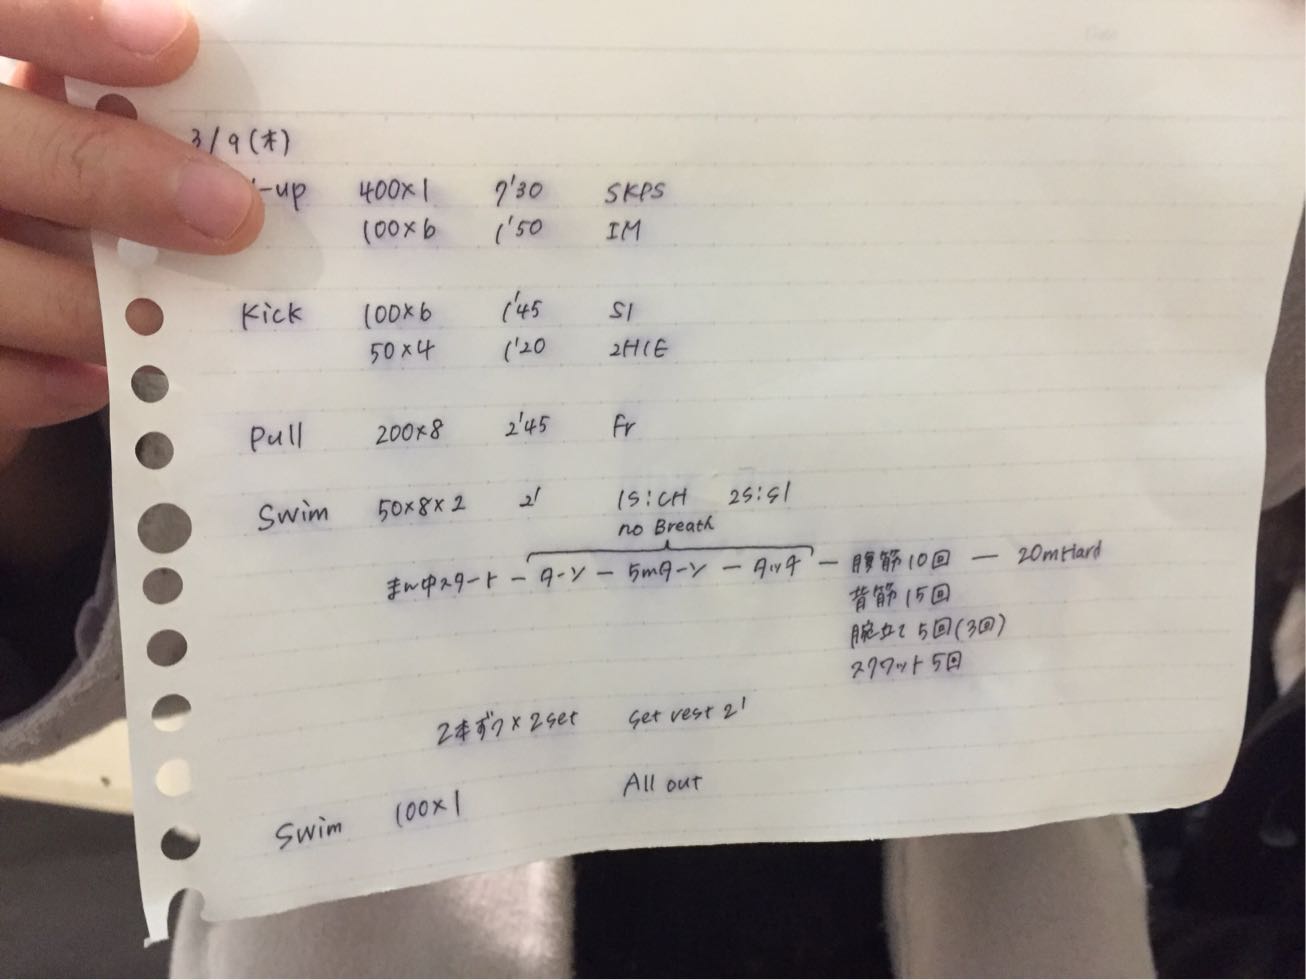 3/9(木)
-up 400×1 7'30 SKPS
100×6 1'50 IM
Kick 100×6 1'45 S1
50×4 1'20 2H1E
Pull 200×8 2'45 Fr
Swim 50×8×2 2' 1S:CH 2S:S1
no Breath
まん中スタート - ターン - 5mターン - タッチ - 腹筋10回 - 20mHard
背筋15回
腕立て5回(3回)
スクワット5回
2本ずつ×2set set rest 2'
Swim 100×1 All out